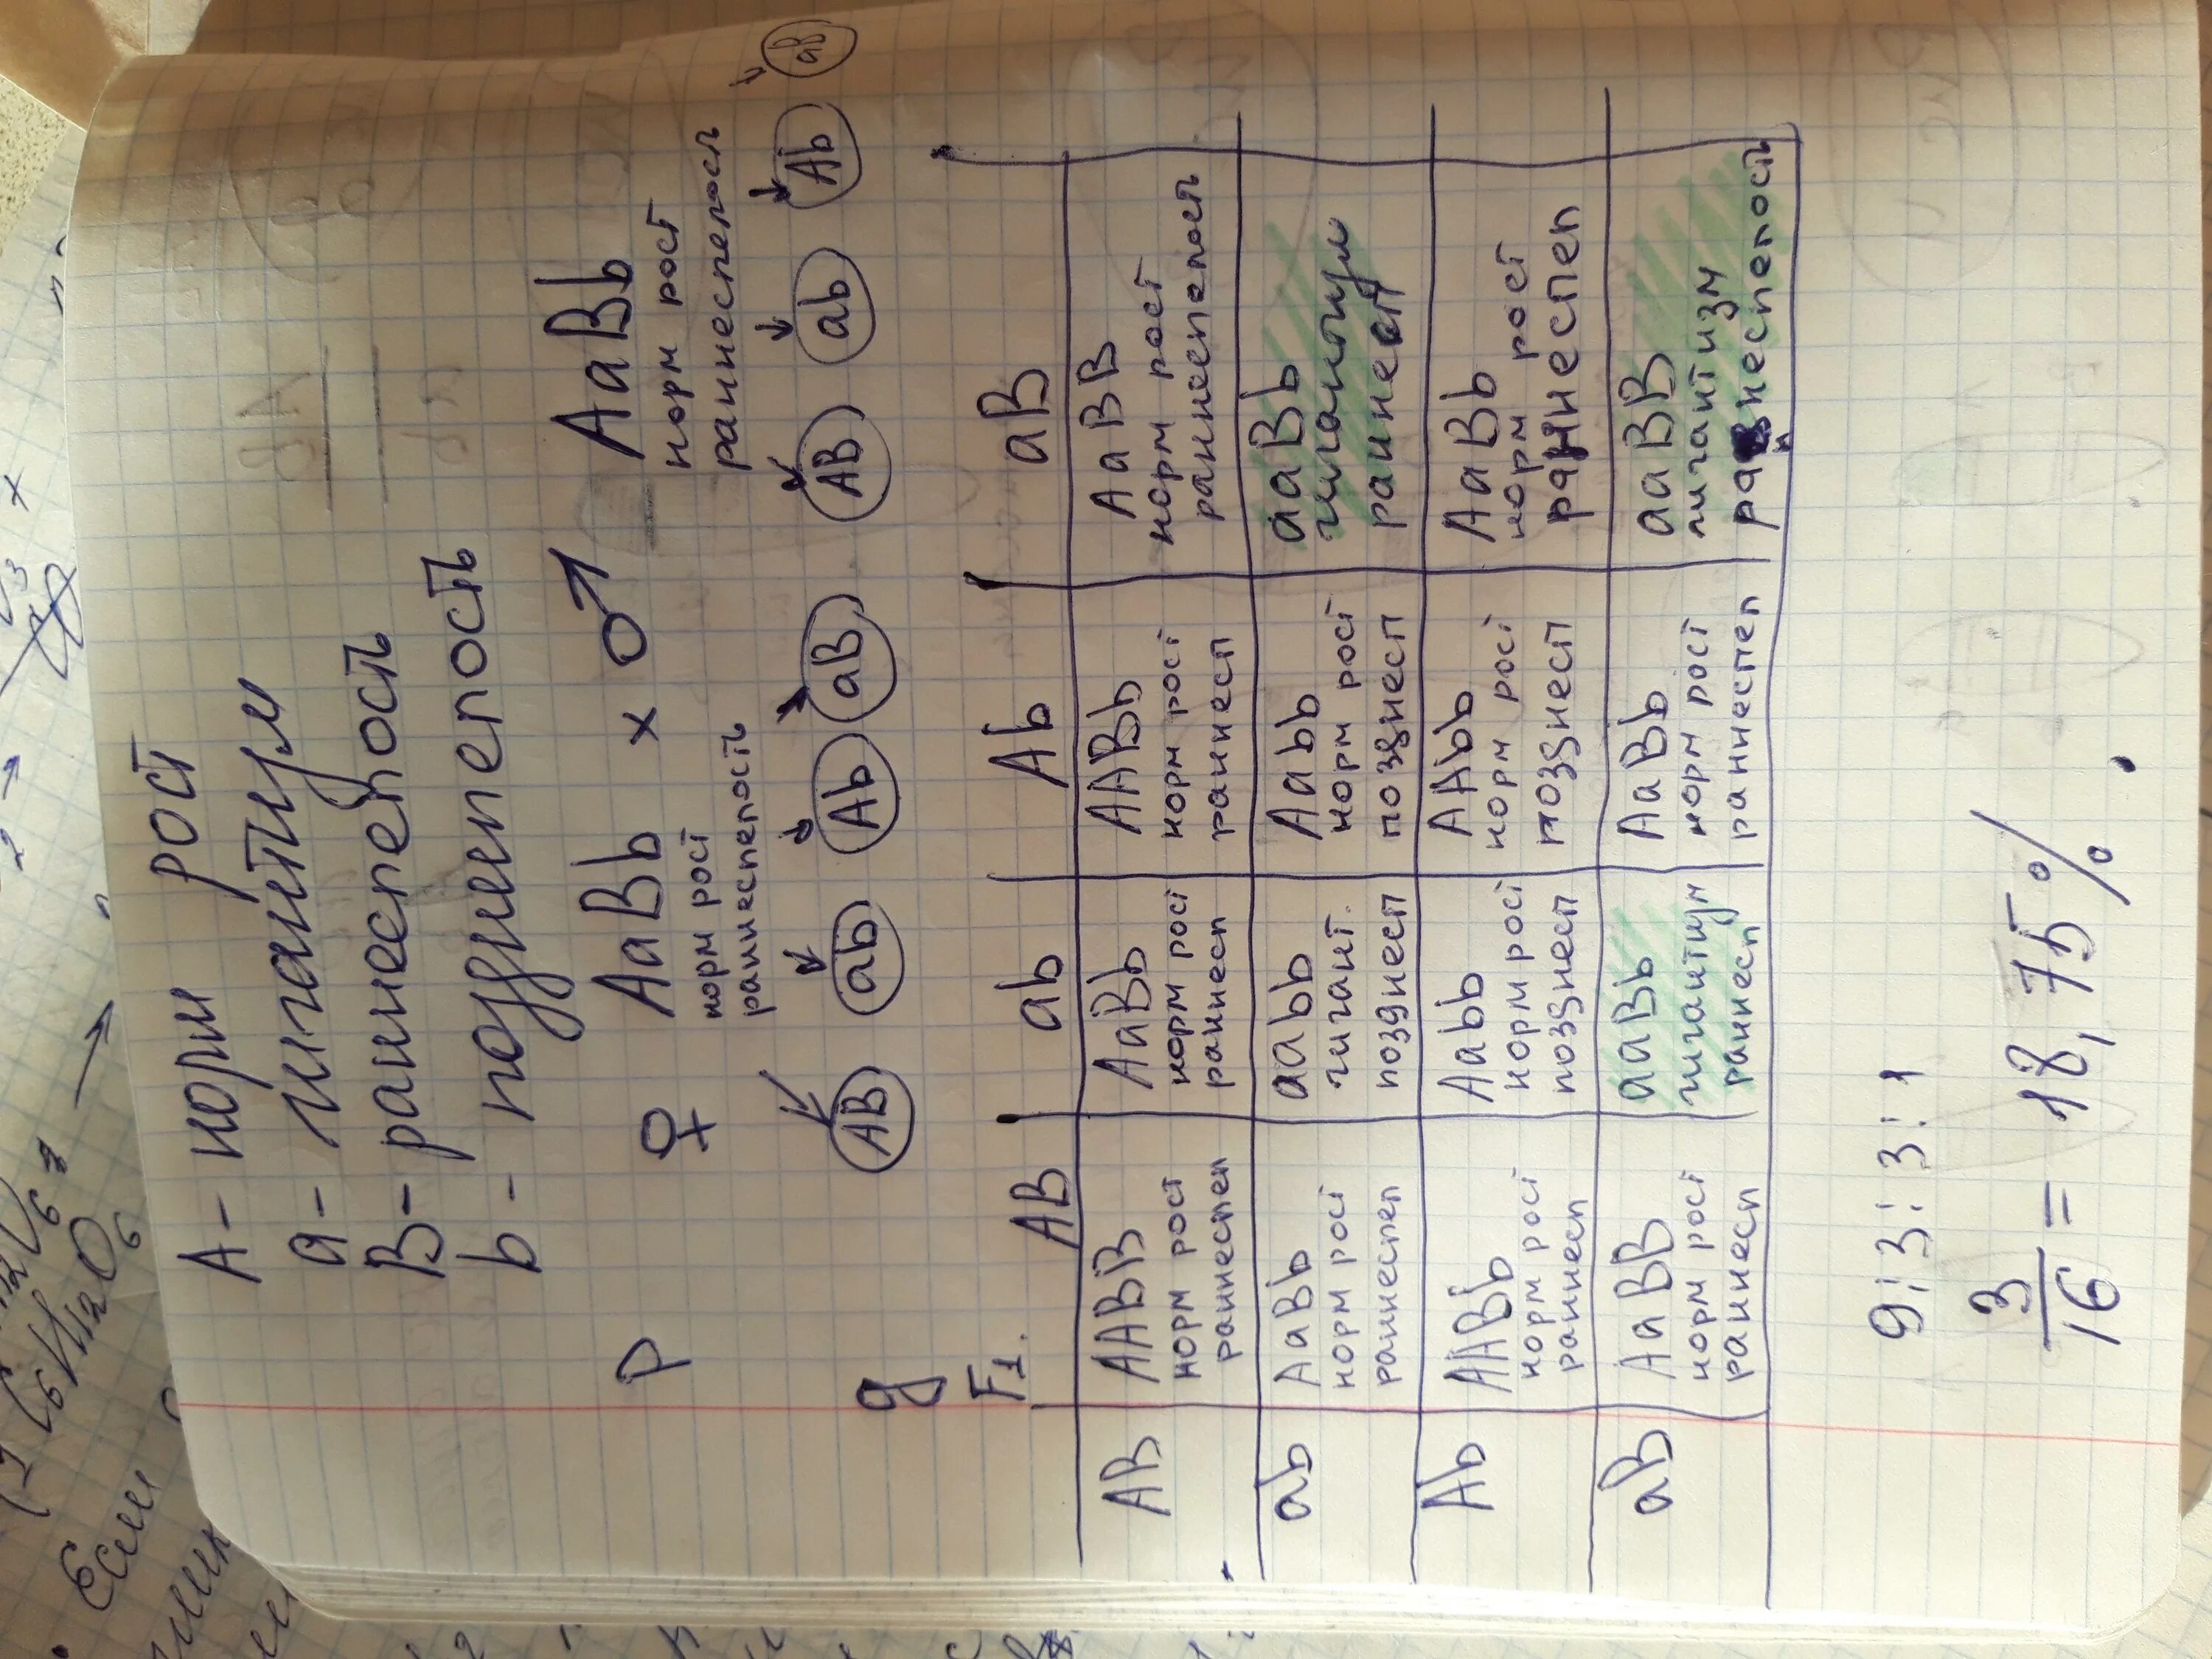 A - норм рост
a - гигантизм
B - раннеспелость
b - позднепелость
P ♀ AaBb x ♂ AaBb
норм рост норм рост
раннеспелость раннеспелость
g AB ab Ab aB AB ab Ab aB
F1. AB ab Ab aB
AB AABB AaBb AABb AaBB
норм рост норм рост норм рост норм рост
раннеспел раннесп раннесп раннеспелость
ab AaBb aabb Aabb aaBb
норм рост гигант. норм рост гигантизм
раннеспел позднесп позднесп раннесп
Ab AABb Aabb AAbb AaBb
норм рост норм рост норм рост норм рост
раннесп позднесп позднесп раннеспел
aB AaBB aaBb AaBb aaBB
норм рост гигантизм норм рост гигантизм
раннесп раннесп раннеспел раннеспелость
9:3:3:1
3/16 = 18,75%.
Если